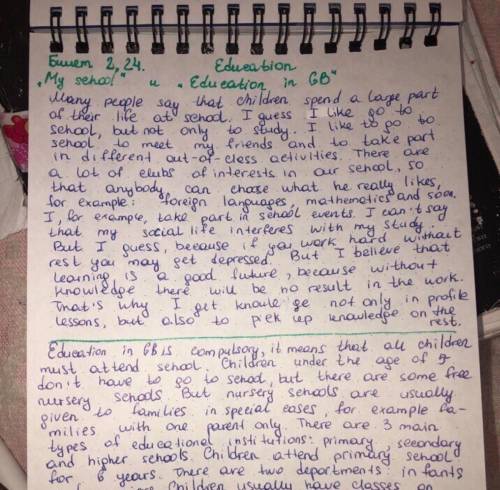 Билет 2, 24. Education
„My school" и „Education in GB"
Many people say that children spend a large part
of their life at school. I guess I like go to
school, but not only to study. I like to go to
school to meet my friends and to take part
in different out-of-class activities. There are
a lot of clubs of interests in our school, so
that anybody can chose what he really likes,
for example: foreign languages, mathematics and soon.
I, for example, take part in school events. I can't say
that my social life interferes with my study.
But I guess, because if you work hard without
rest you may get depressed. But I believe that
learning is a good future, because without
knowledge there will be no result in the work.
That's why I get knowle ge not only in profile
lessons, but also to pick up knowledge on the
rest.
Education in GB is compulsory, it means that all children
must attend school. Children under the age of 5
don't have to go to school, but there are some free
nursery schools. But nursery schools are usually
given to families in special cases, for example fa-
milies with one parent only. There are 3 main
types of educational institutions: primary, secondary
and higher schools. Children attend primary school
for 6 years. There are two departments: infants
Children usually have classes on